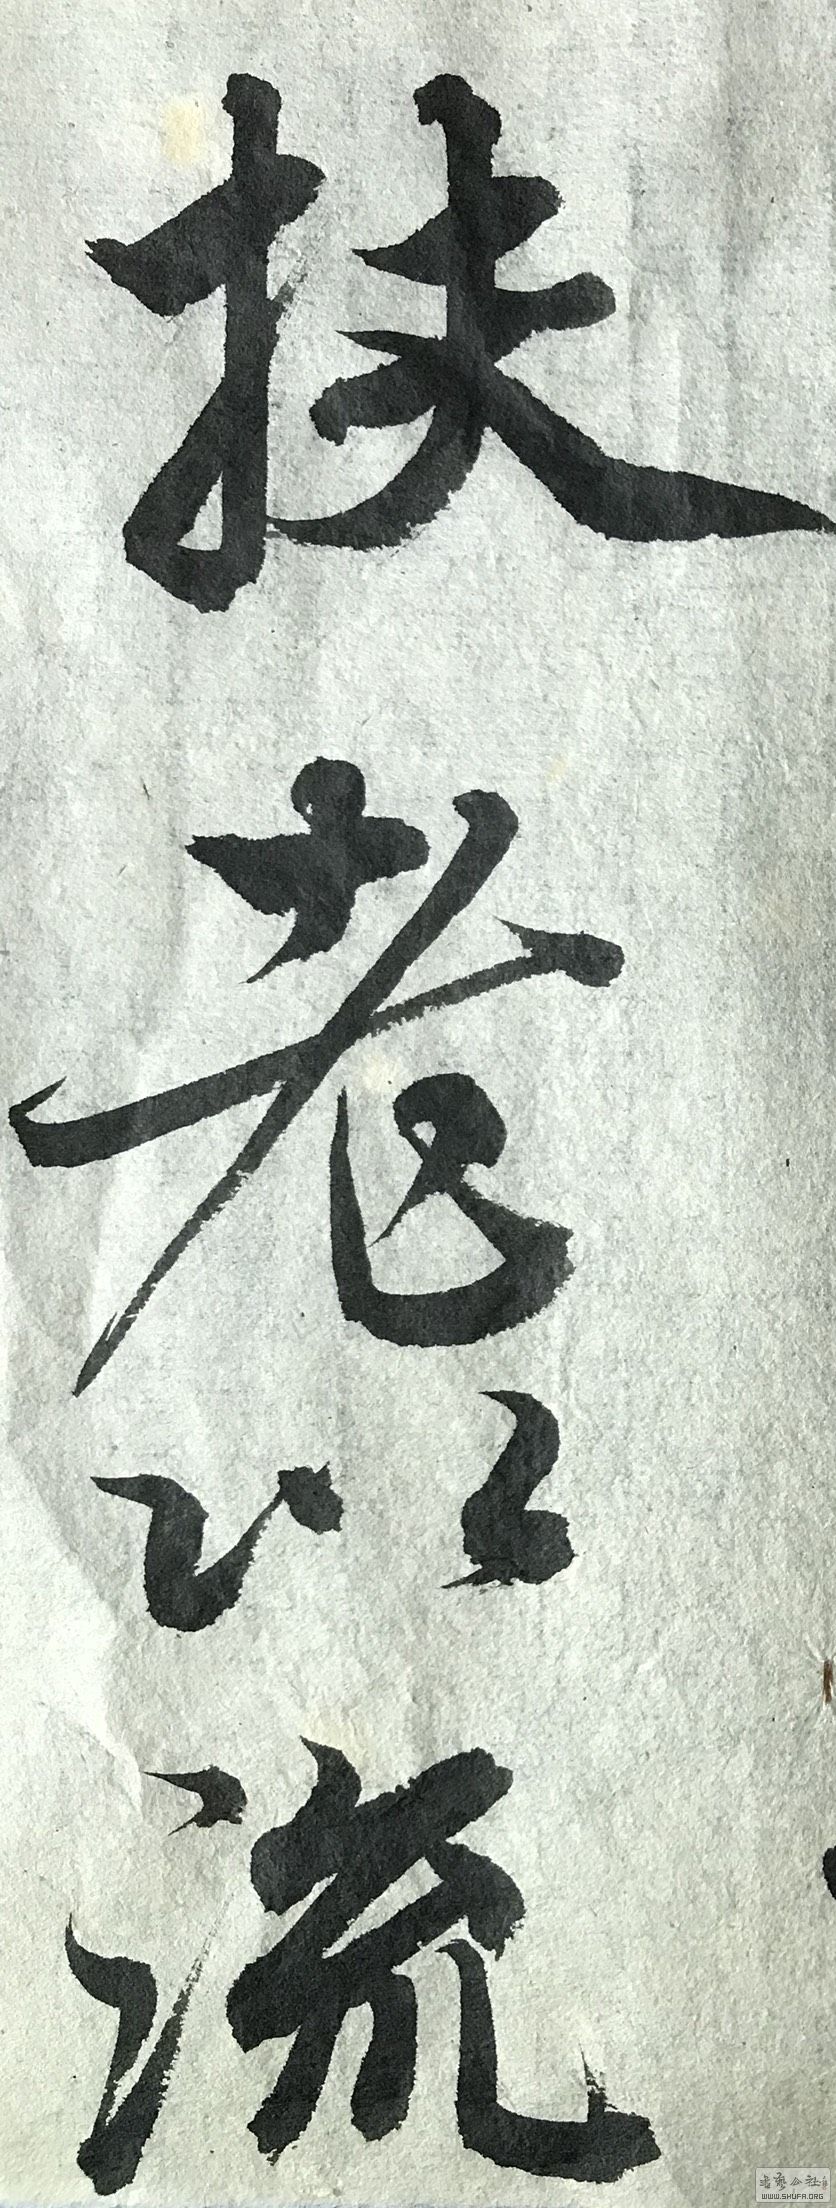 扶老以流
书艺公社
WWW.SHUFA.ORG